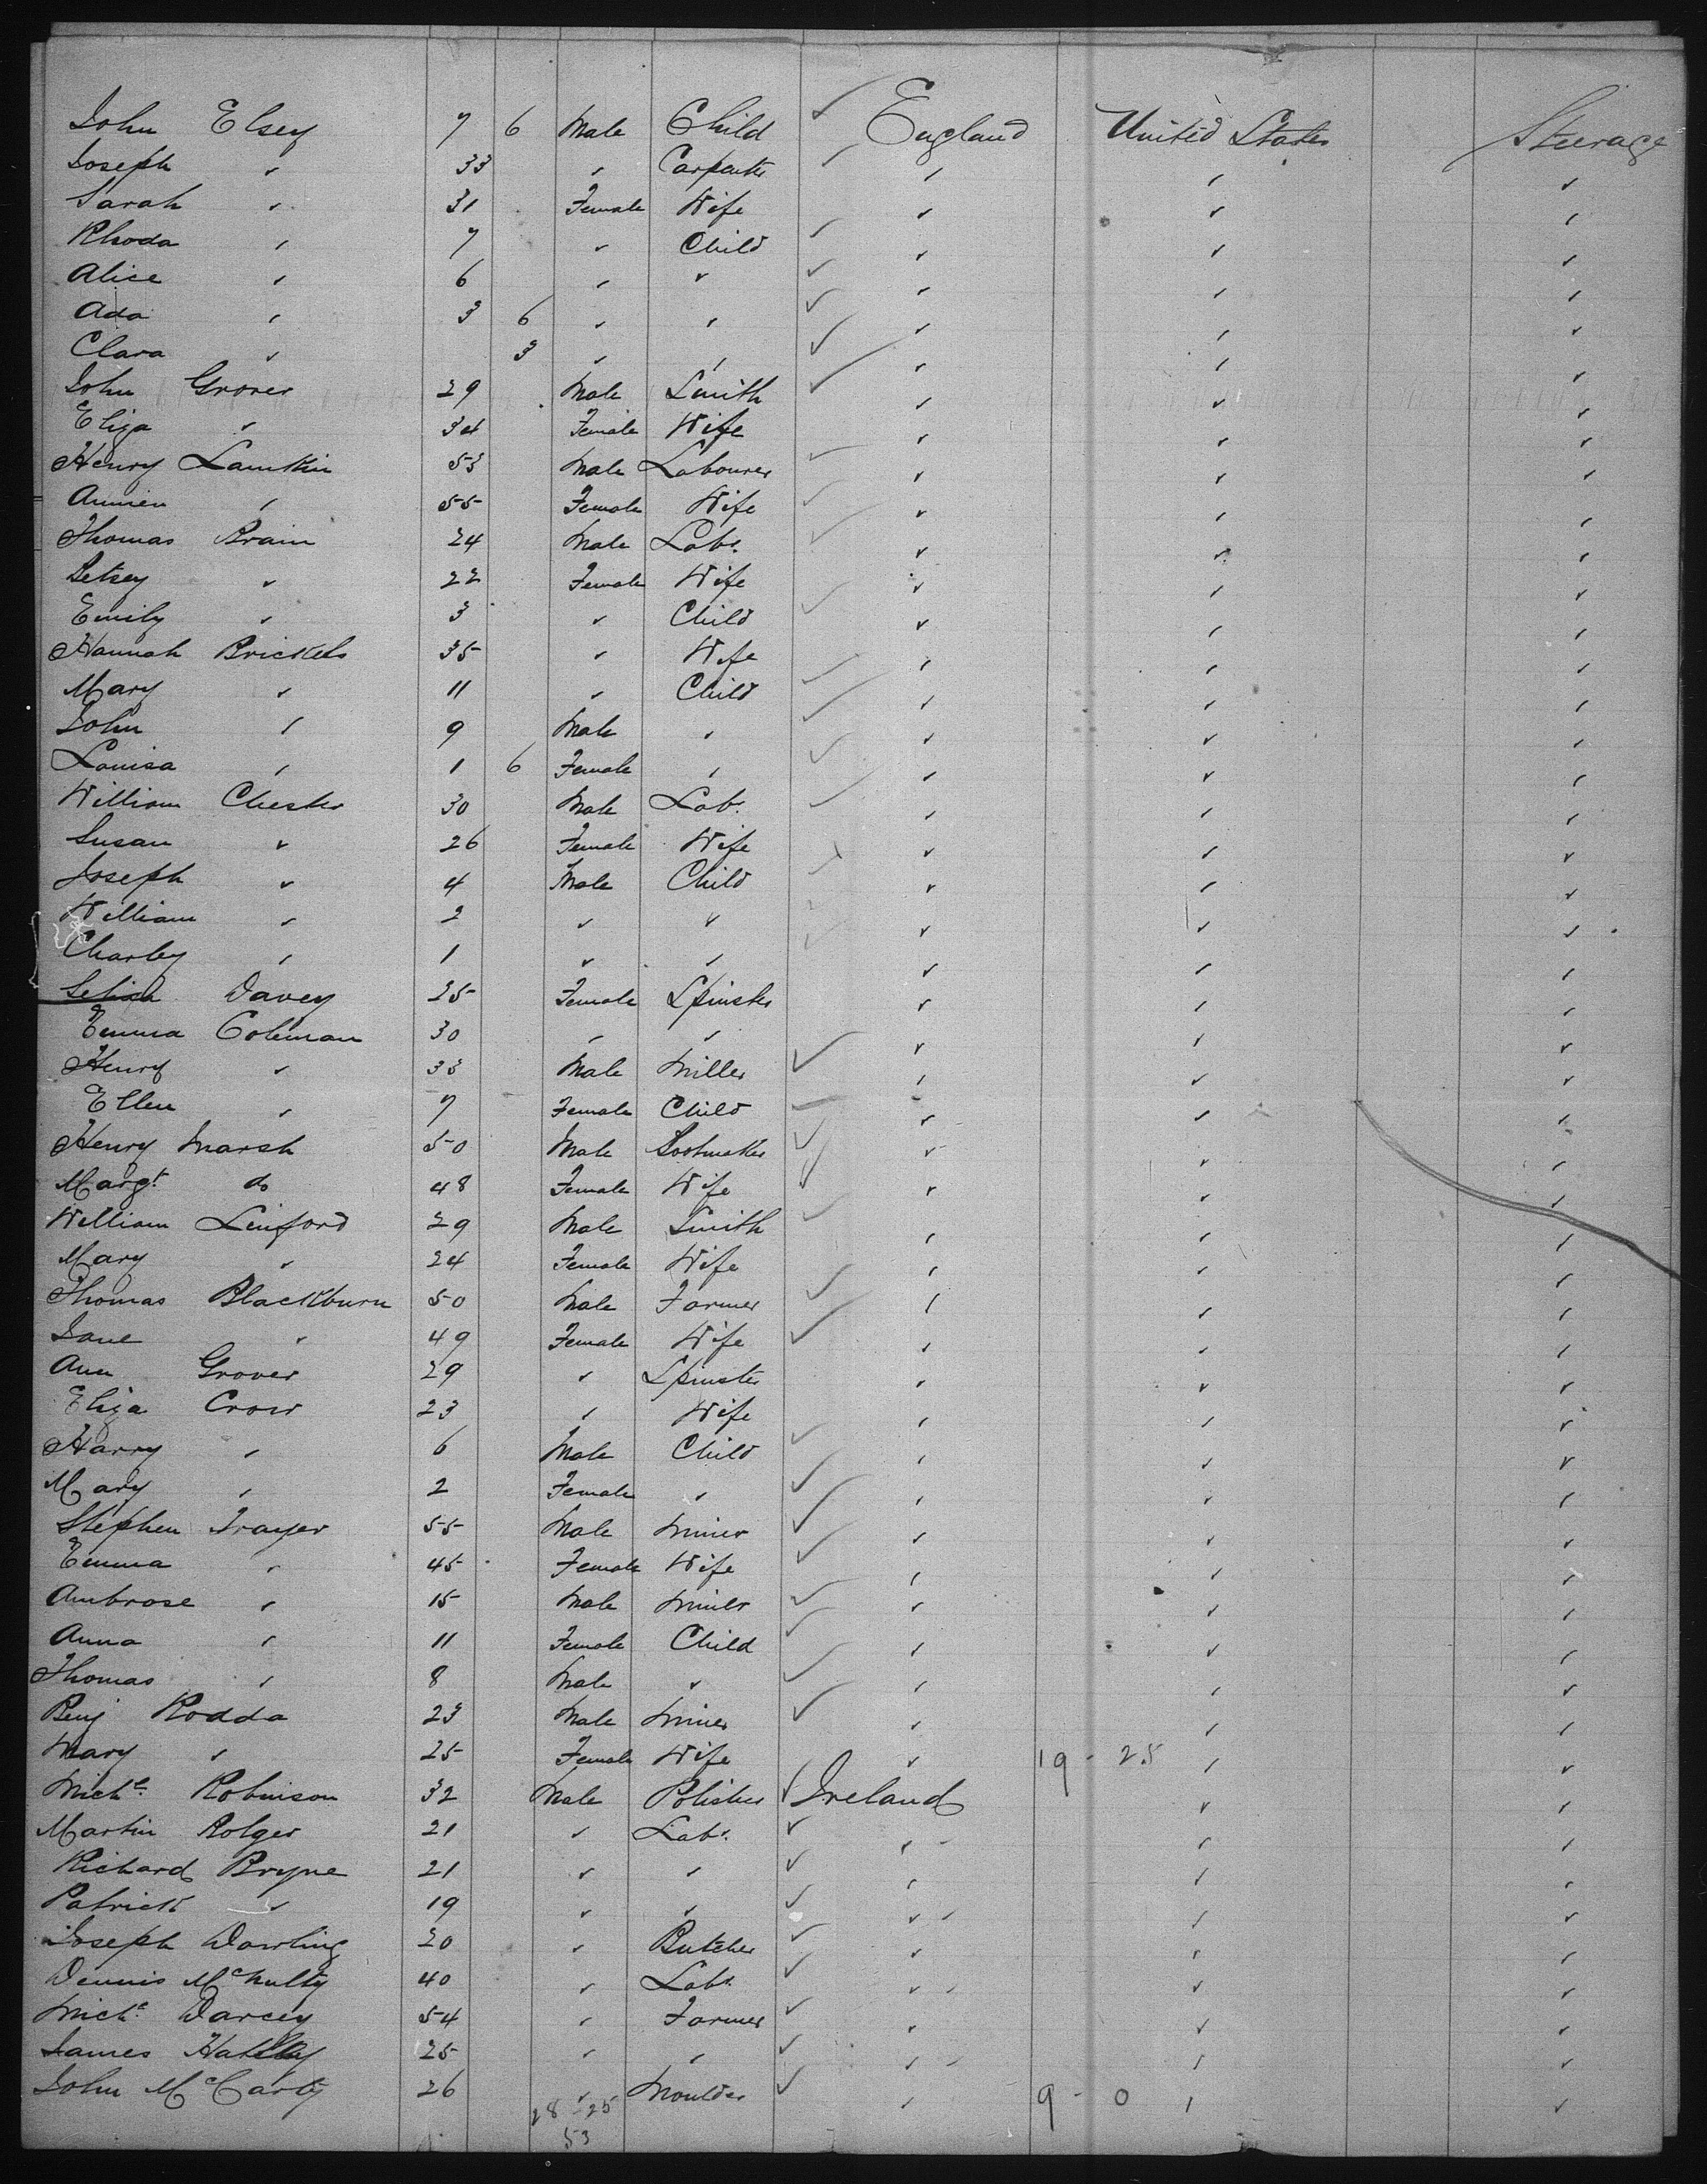 John Elsey 7 6 Male Child ✓ England United States Steerage
Joseph " 33 " Carpenter ✓ " " "
Sarah " 31 Female Wife " " "
Rhoda " 7 " Child ✓ " " "
Alice " 6 " " ✓ " " "
Ada " 3 6 " " ✓ " " "
Clara " 3 " " ✓ " " "
John Grover 29 Male Smith ✓ " " "
Eliza " 34 Female Wife " " "
Henry Lamkin 53 Male Labourer ✓ " " "
" 55 Female Wife ✓ " " "
Thomas Brain 24 Male Labr. ✓ " " "
Betsey " 22 Female Wife " " "
Emily " 3 " Child ✓ " " "
Hannah Brickels 35 " Wife " " "
Mary " 11 " Child ✓ " " "
John " 9 Male " ✓ " " "
Louisa " 1 6 Female " ✓ " " "
William Chester 30 Male Labr. ✓ " " "
Susan " 26 Female Wife " " "
Joseph " 4 Male Child ✓ " " "
William " 2 " " ✓ " " "
Charley " 1 " " ✓ " " "
Davey 25 Female Spinster " " "
Emma Coleman 30 " " " " "
Henry " 33 Male Miller ✓ " " "
Ellen " 7 Female Child ✓ " " "
Henry Marsh 50 Male Bootmaker ✓ " " "
Margt. do 48 Female Wife ✓ " " "
William Linford 29 Male Smith ✓ " " "
Mary " 24 Female Wife " " "
Thomas Blackburn 50 Male Farmer ✓ " " "
Jane " 49 Female Wife ✓ " " "
Ann Grover 29 " Spinster " " "
Eliza Crow 23 " Wife " " "
Harry " 6 Male Child ✓ " " "
Mary " 2 Female " ✓ " " "
Stephen 55 Male Miner ✓ " " "
Emma " 45 Female Wife ✓ " " "
Ambrose " 15 Male Miner ✓ " " "
Anna " 11 Female Child ✓ " " "
Thomas " 8 Male " ✓ " " "
Benj Rodda 23 Male Miner ✓ " " "
Mary " 25 Female Wife " 19 - 25 " "
Michl. Robinson 32 Male Polisher ✓ Ireland " "
Martin Bolger 21 " Labr. ✓ " " "
Richard Bryne 21 " " ✓ " " "
Patrick " 19 " " ✓ " " "
Joseph Dowling 20 " Butcher ✓ " " "
Dennis McNulty 40 " Labr. ✓ " " "
Michl. Darcey 54 " Farmer ✓ " " "
James 25 " " ✓ " " "
John McCarty 26 " Moulder ✓ " 9 - 0 " "
28 - 25
53